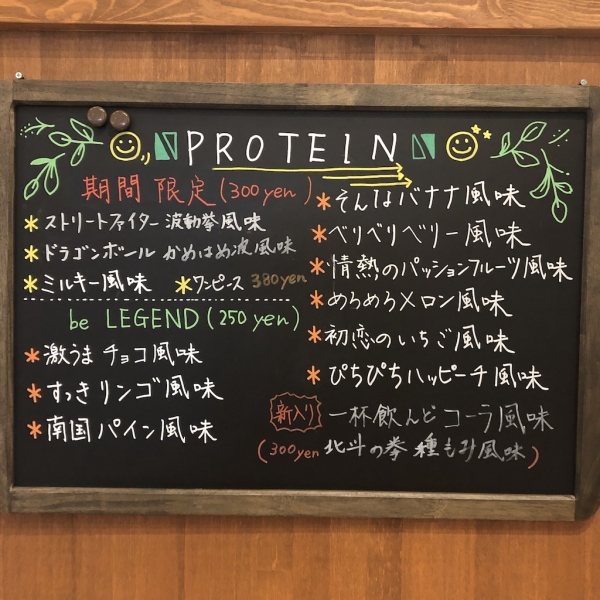 PROTEIN
期間限定(300yen)
*ストリートファイター 波動拳風味
*ドラゴンボール かめはめ波風味
*ミルキー風味 *ワンピース 380yen
be LEGEND(250yen)
*激うまチョコ風味
*すっきリンゴ風味
*南国パイン風味
*そんなバナナ風味
*ベリベリベリー風味
*情熱のパッションフルーツ風味
*めろめろメロン風味
*初恋のいちご風味
*ぴちぴちハッピーチ風味
新入り 一杯飲んどコーラ風味
(300yen 北斗の拳 種もみ風味)